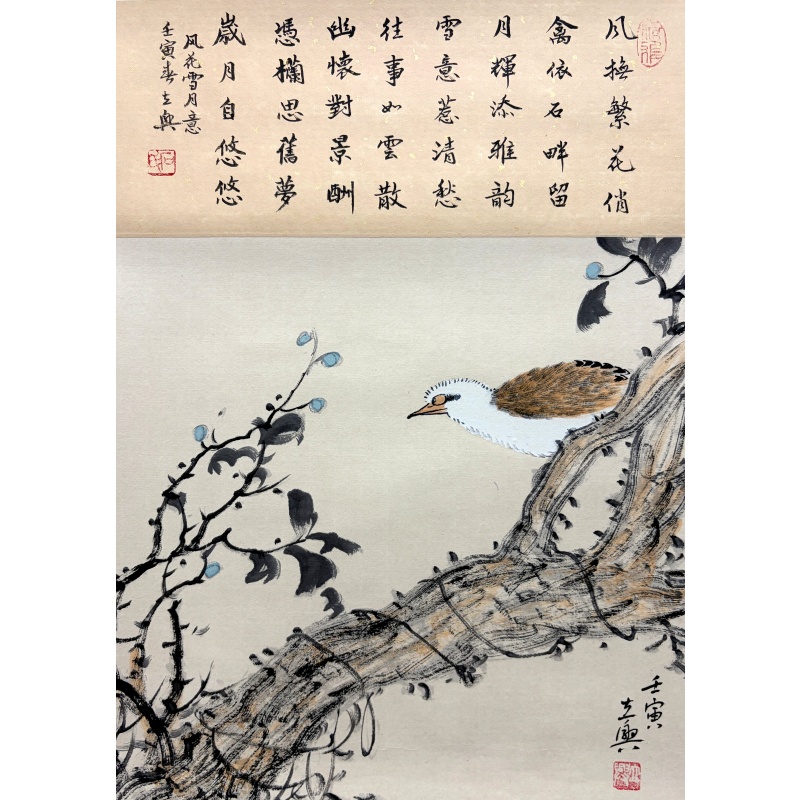 風撫繁花俏
禽依石畔留
月輝添雅韵
雪意惹清愁
往事如雲散
幽懷對景酬
憑欄思舊夢
歲月自悠悠
風花雪月意
壬寅春立興
壬寅
立興